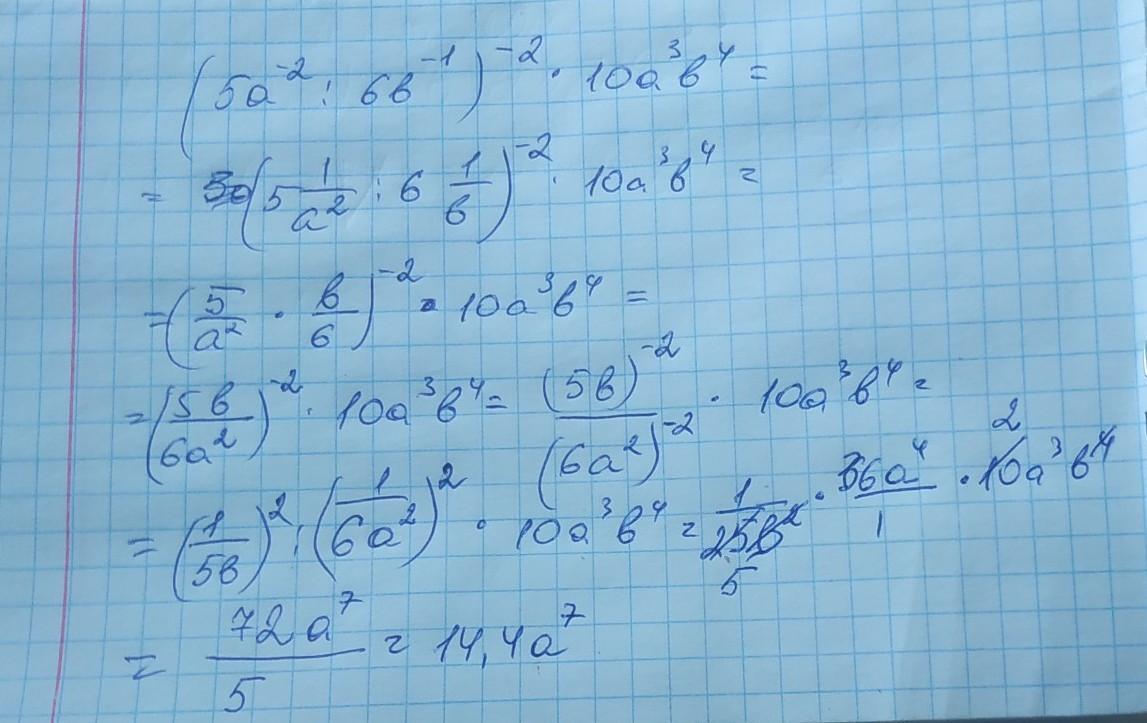 (5a⁻² : 6b⁻¹)⁻² · 10a³b⁴ =
= (5 1/a² : 6 1/b)⁻² · 10a³b⁴ =
= (5/a² · b/6)⁻² · 10a³b⁴ =
= (5b/6a²)⁻² · 10a³b⁴ = (5b)⁻²/(6a²)⁻² · 10a³b⁴ =
= (1/5b)² : (1/6a²)² · 10a³b⁴ = 1/25b² · 36a⁴/1 · 10a³b⁴
2
5
= 72a⁷/5 = 14,4a⁷